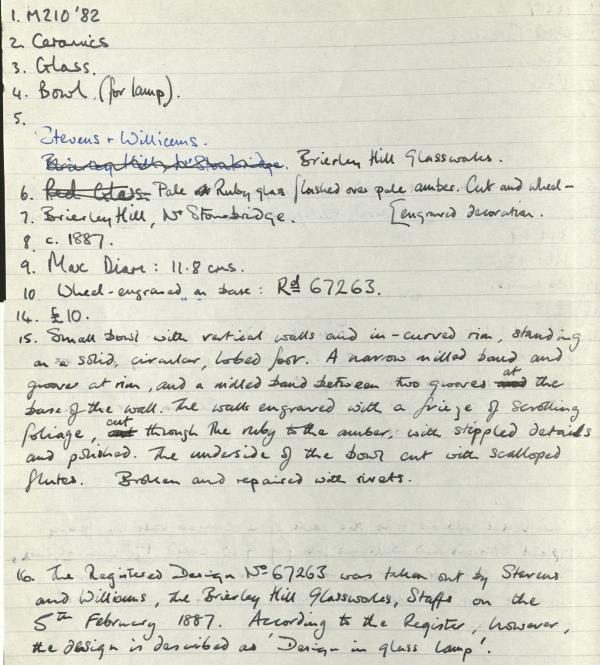 1. M210 '82
2. Ceramics
3. Glass.
4. Bowl (for lamp).
5.
Stevens + Williams.
Brierley Hill, Nr Stourbridge. Brierley Hill Glassworks.
6. Red Glass. Pale Ruby glass flashed over pale amber. Cut and wheel-
7. Brierley Hill, Nr Stourbridge. [engraved decoration.
8. c. 1887.
9. Max Diam: 11.8 cms.
10 Wheel-engraved on base: Rd 67263.
14. £10.
15. Small bowl with vertical walls and in-curved rim, standing
on a solid, circular, lobed foot. A narrow milled band and
groove at rim, and a milled band between two grooves at the
base of the wall. The walls engraved with a frieze of scrolling
foliage, cut through the ruby to the amber, with stippled details
and polished. The underside of the bowl cut with scalloped
flutes. Broken and repaired with rivets.
16. The Registered Design No 67263 was taken out by Stevens
and Williams, the Brierley Hill Glassworks, Staffs on the
5th February 1887. According to the Register, however,
the design is described as 'Design in glass lamp'.